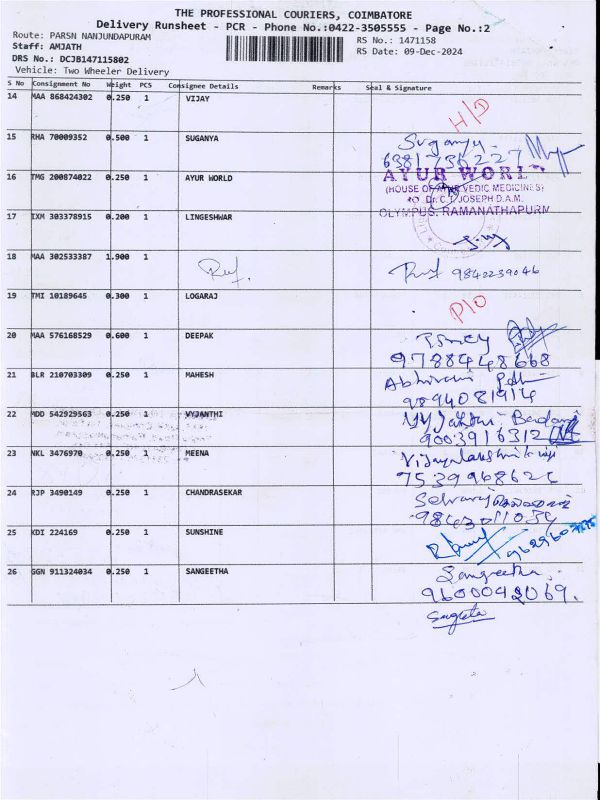 THE PROFESSIONAL COURIERS, COIMBATORE
Delivery Runsheet - PCR - Phone No.:0422-3505555 - Page No.:2
Route: PARSN NANJUNDAPURAM
RS No.: 1471158
Staff: AMJATH
RS Date: 09-Dec-2024
DRS No.: DCJB147115802
Vehicle: Two Wheeler Delivery
S No Consignment No Weight PCS Consignee Details Remarks Seal & Signature
14 MAA 868424302 0.250 1 VIJAY
H/D
15 RHA 70009352 0.500 1 SUGANYA
Suganya
16 TMG 200874022 0.250 1 AYUR WORLD
AYUR WORLD
(HOUSE OF AYUR VEDIC MEDICINES)
Dr. C.T. JOSEPH D.A.M.
OLYMPUS, RAMANATHAPURM
17 IXM 303378915 0.200 1 LINGESHWAR
18 MAA 302533387 1.900 1
9842239046
19 TMI 10189645 0.300 1 LOGARAJ
20 MAA 576168529 0.600 1 DEEPAK
9788448668
21 BLR 210703309 0.250 1 MAHESH
9894081914
22 MDD 542929563 0.250 1 VYJANTHI
9003916312
23 NKL 3476970 0.250 1 MEENA
24 RJP 3490149 0.250 1 CHANDRASEKAR
Selvaraj
25 KDI 224169 0.250 1 SUNSHINE
26 GGN 911324034 0.250 1 SANGEETHA
Sangeetha
9600042069.